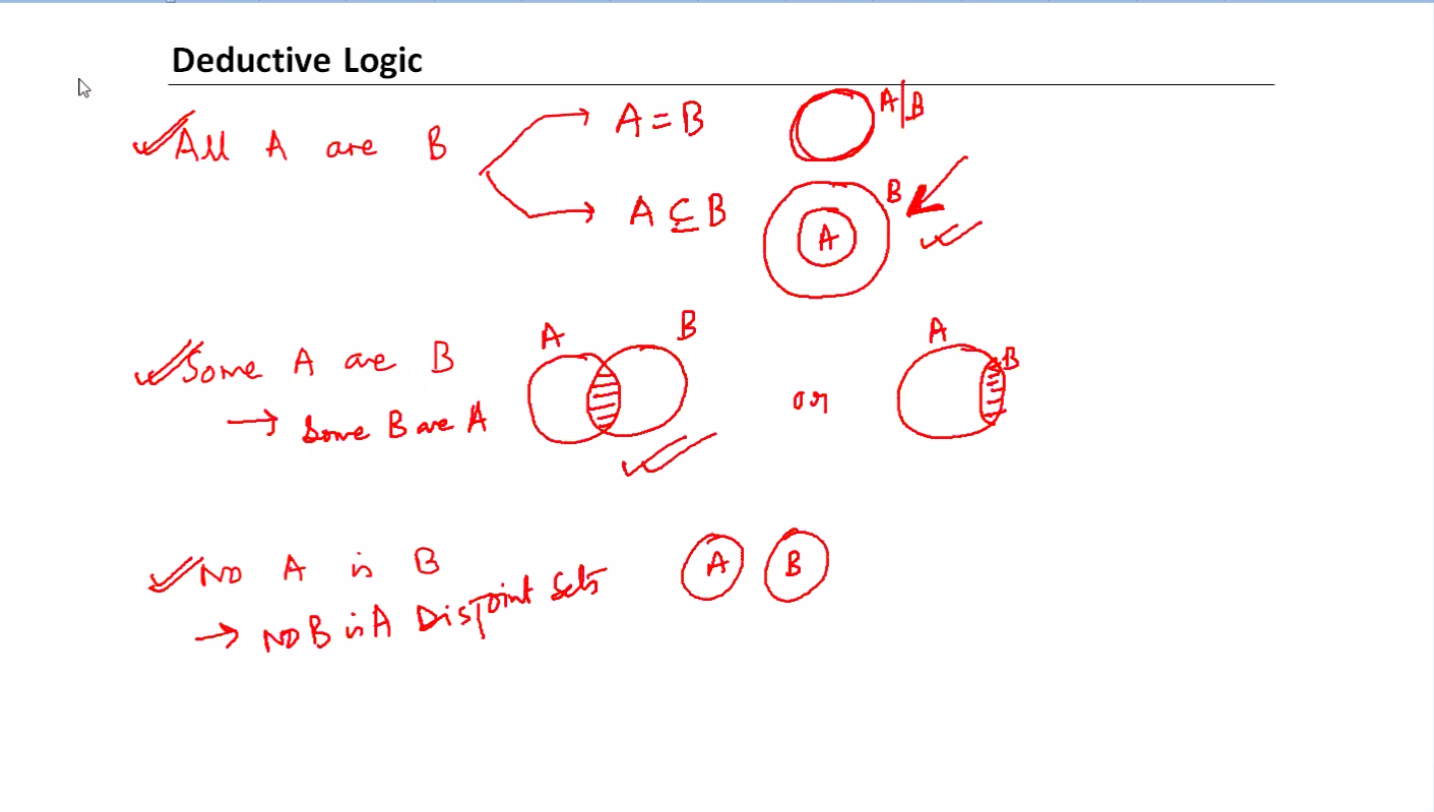 Deductive Logic
All A are B
A = B
A|B
A ⊆ B
B
A
Some A are B
A
B
or
A
B
→ Some B are A
No A is B
A
B
→ No B is A Disjoint Sets